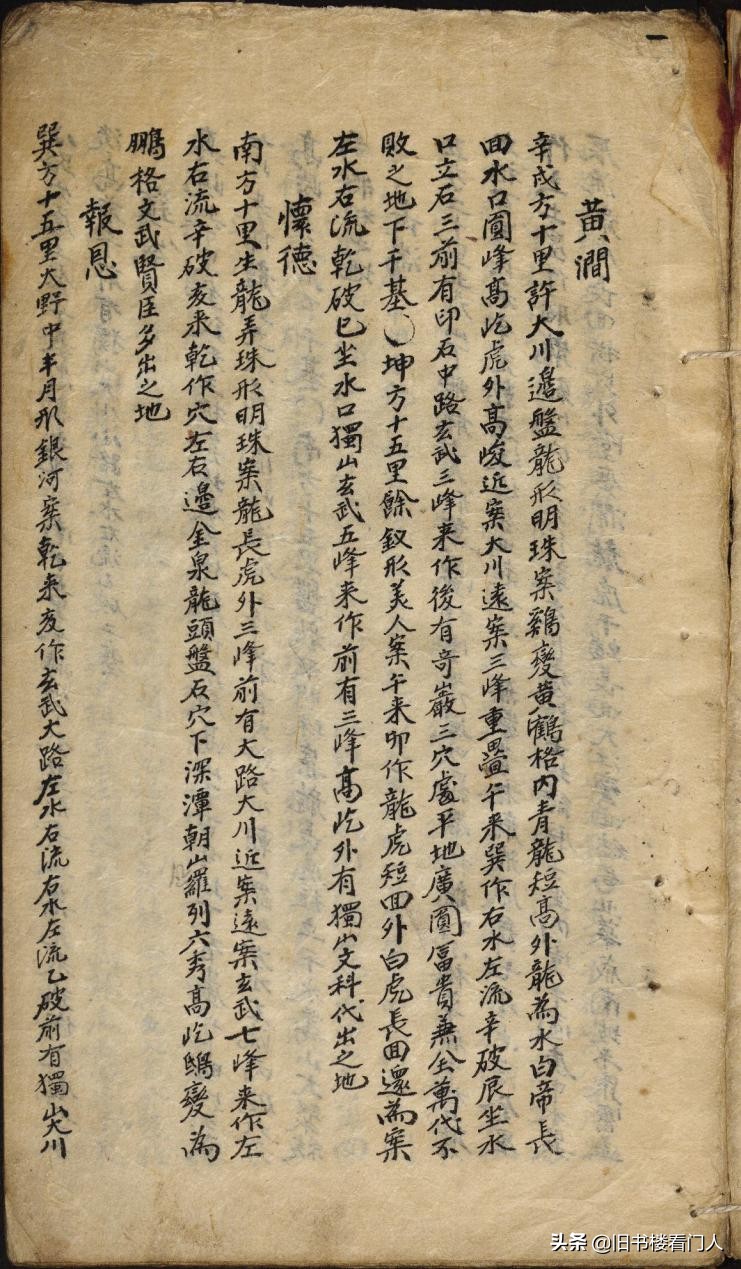 黃澗
辛戌方十里許大川邊盤龍形明珠案鷄變黃鶴格內青龍短高外龍為水白帝長
回水口圓峰高屹虎外高峻近案大川遠案三峰重疊午来巽作右水左流辛破辰坐水
口立石三前有印石中路玄武三峰来作後有奇巖三穴處平地廣圓冨貴兼全萬代不
敗之地下千基〇坤方十五里餘釵形美人案午来卯作龍虎短回外白虎長回還為案
左水右流乾破巳坐水口獨山玄武五峰来作前有三峰高屹外有獨山文科代出之地
懷德
南方十里生龍弄珠形明珠案龍長虎外三峰前有大路大川近案遠案玄武七峰来作左
水右流辛破亥来乾作穴左右邊金泉龍頭盤石穴下深潭朝山羅列六秀高屹鷃變為
鵬格文武賢臣多出之地
報恩
巽方十五里大野中半月形銀河案乾来亥作玄武大路左水右流右水左流乙破前有獨山大川
头条 @旧书楼看门人